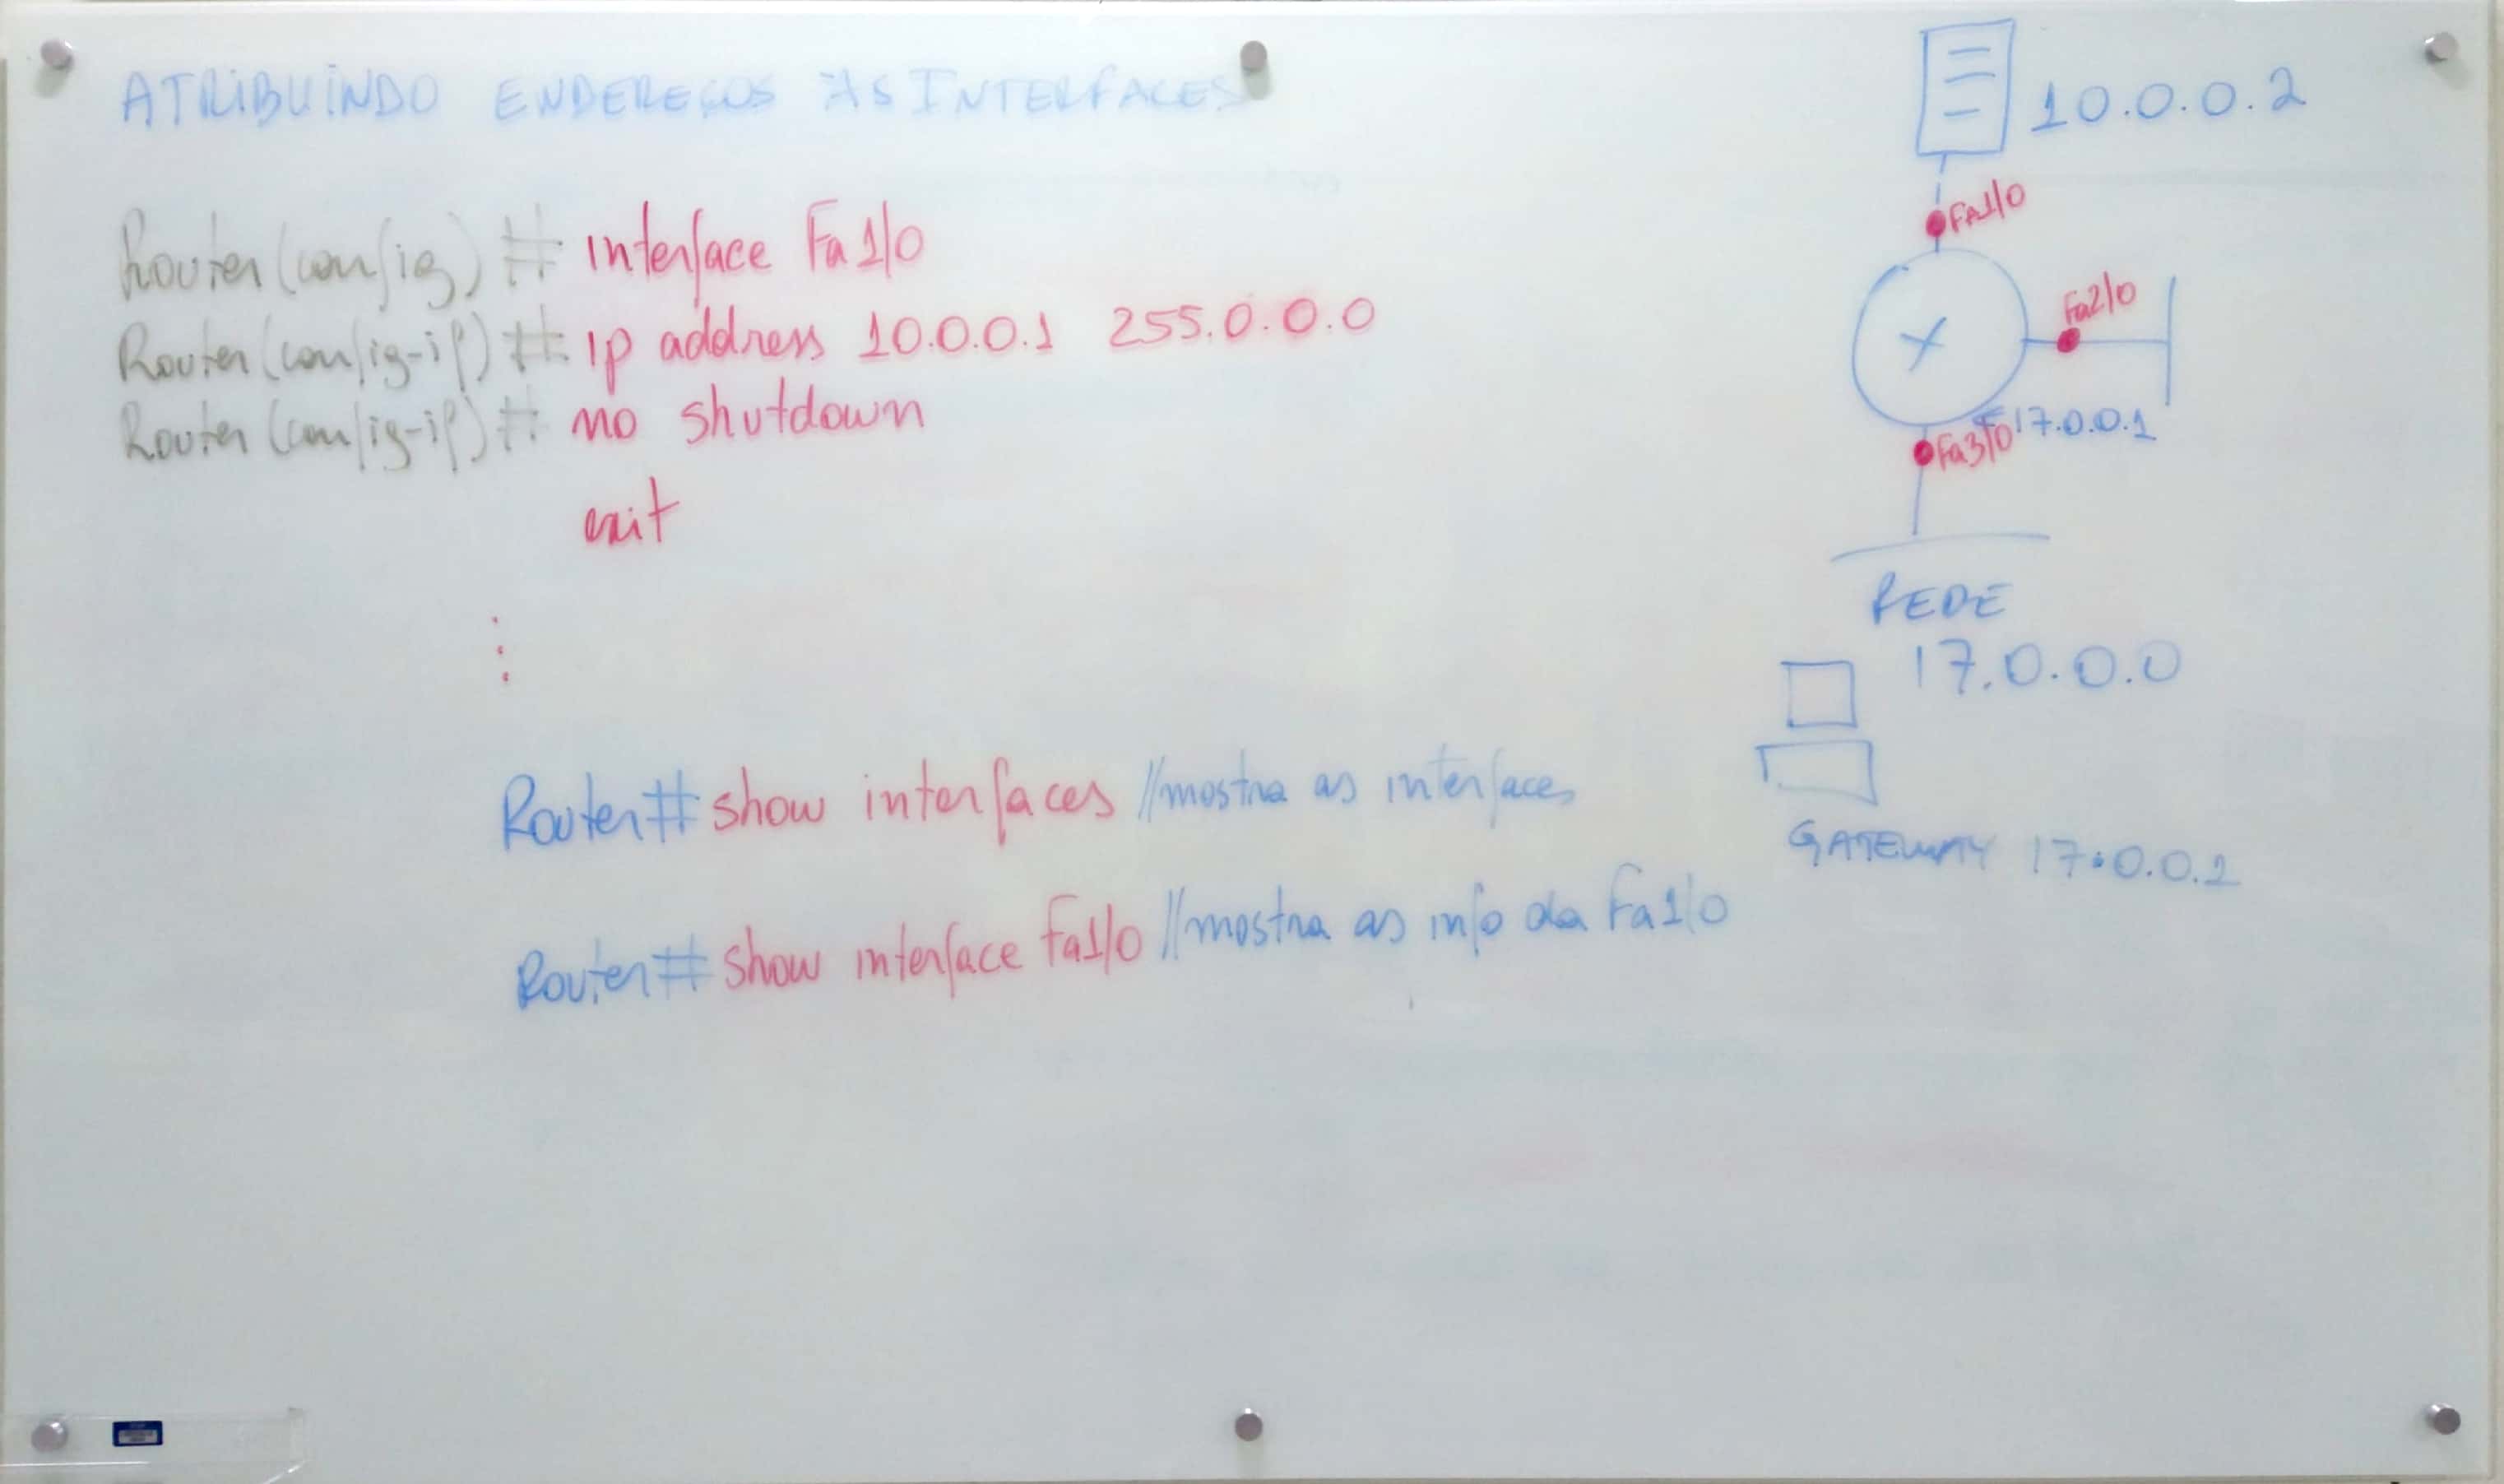 ATRIBUINDO ENDEREÇOS ÀS INTERFACES
Router(config)# interface Fa1/0
Router(config-if)# ip address 10.0.0.1 255.0.0.0
Router(config-if)# no shutdown
exit
⋮
Router# show interfaces //mostra as interfaces
Router# show interface Fa1/0 //mostra as info da Fa1/0
10.0.0.2
Fa1/0
Fa2/0
17.0.0.1
Fa3/0
REDE
17.0.0.0
GATEWAY 17.0.0.1